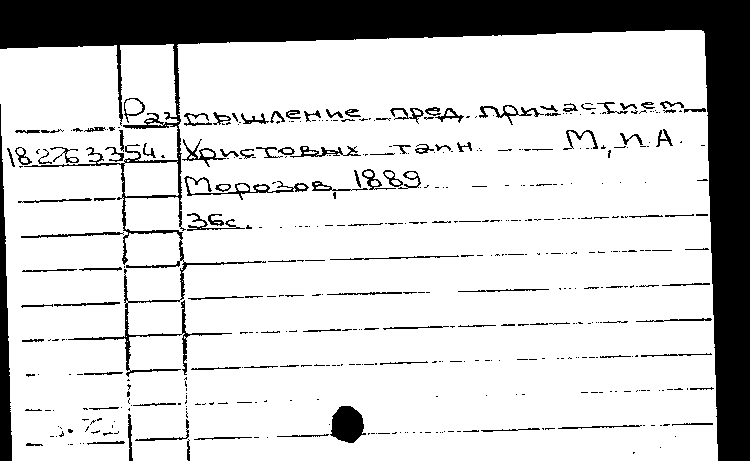 Размышление пред причастием
18276335 54. Христовых таин М., И А.
Морозов, 1889
36с.